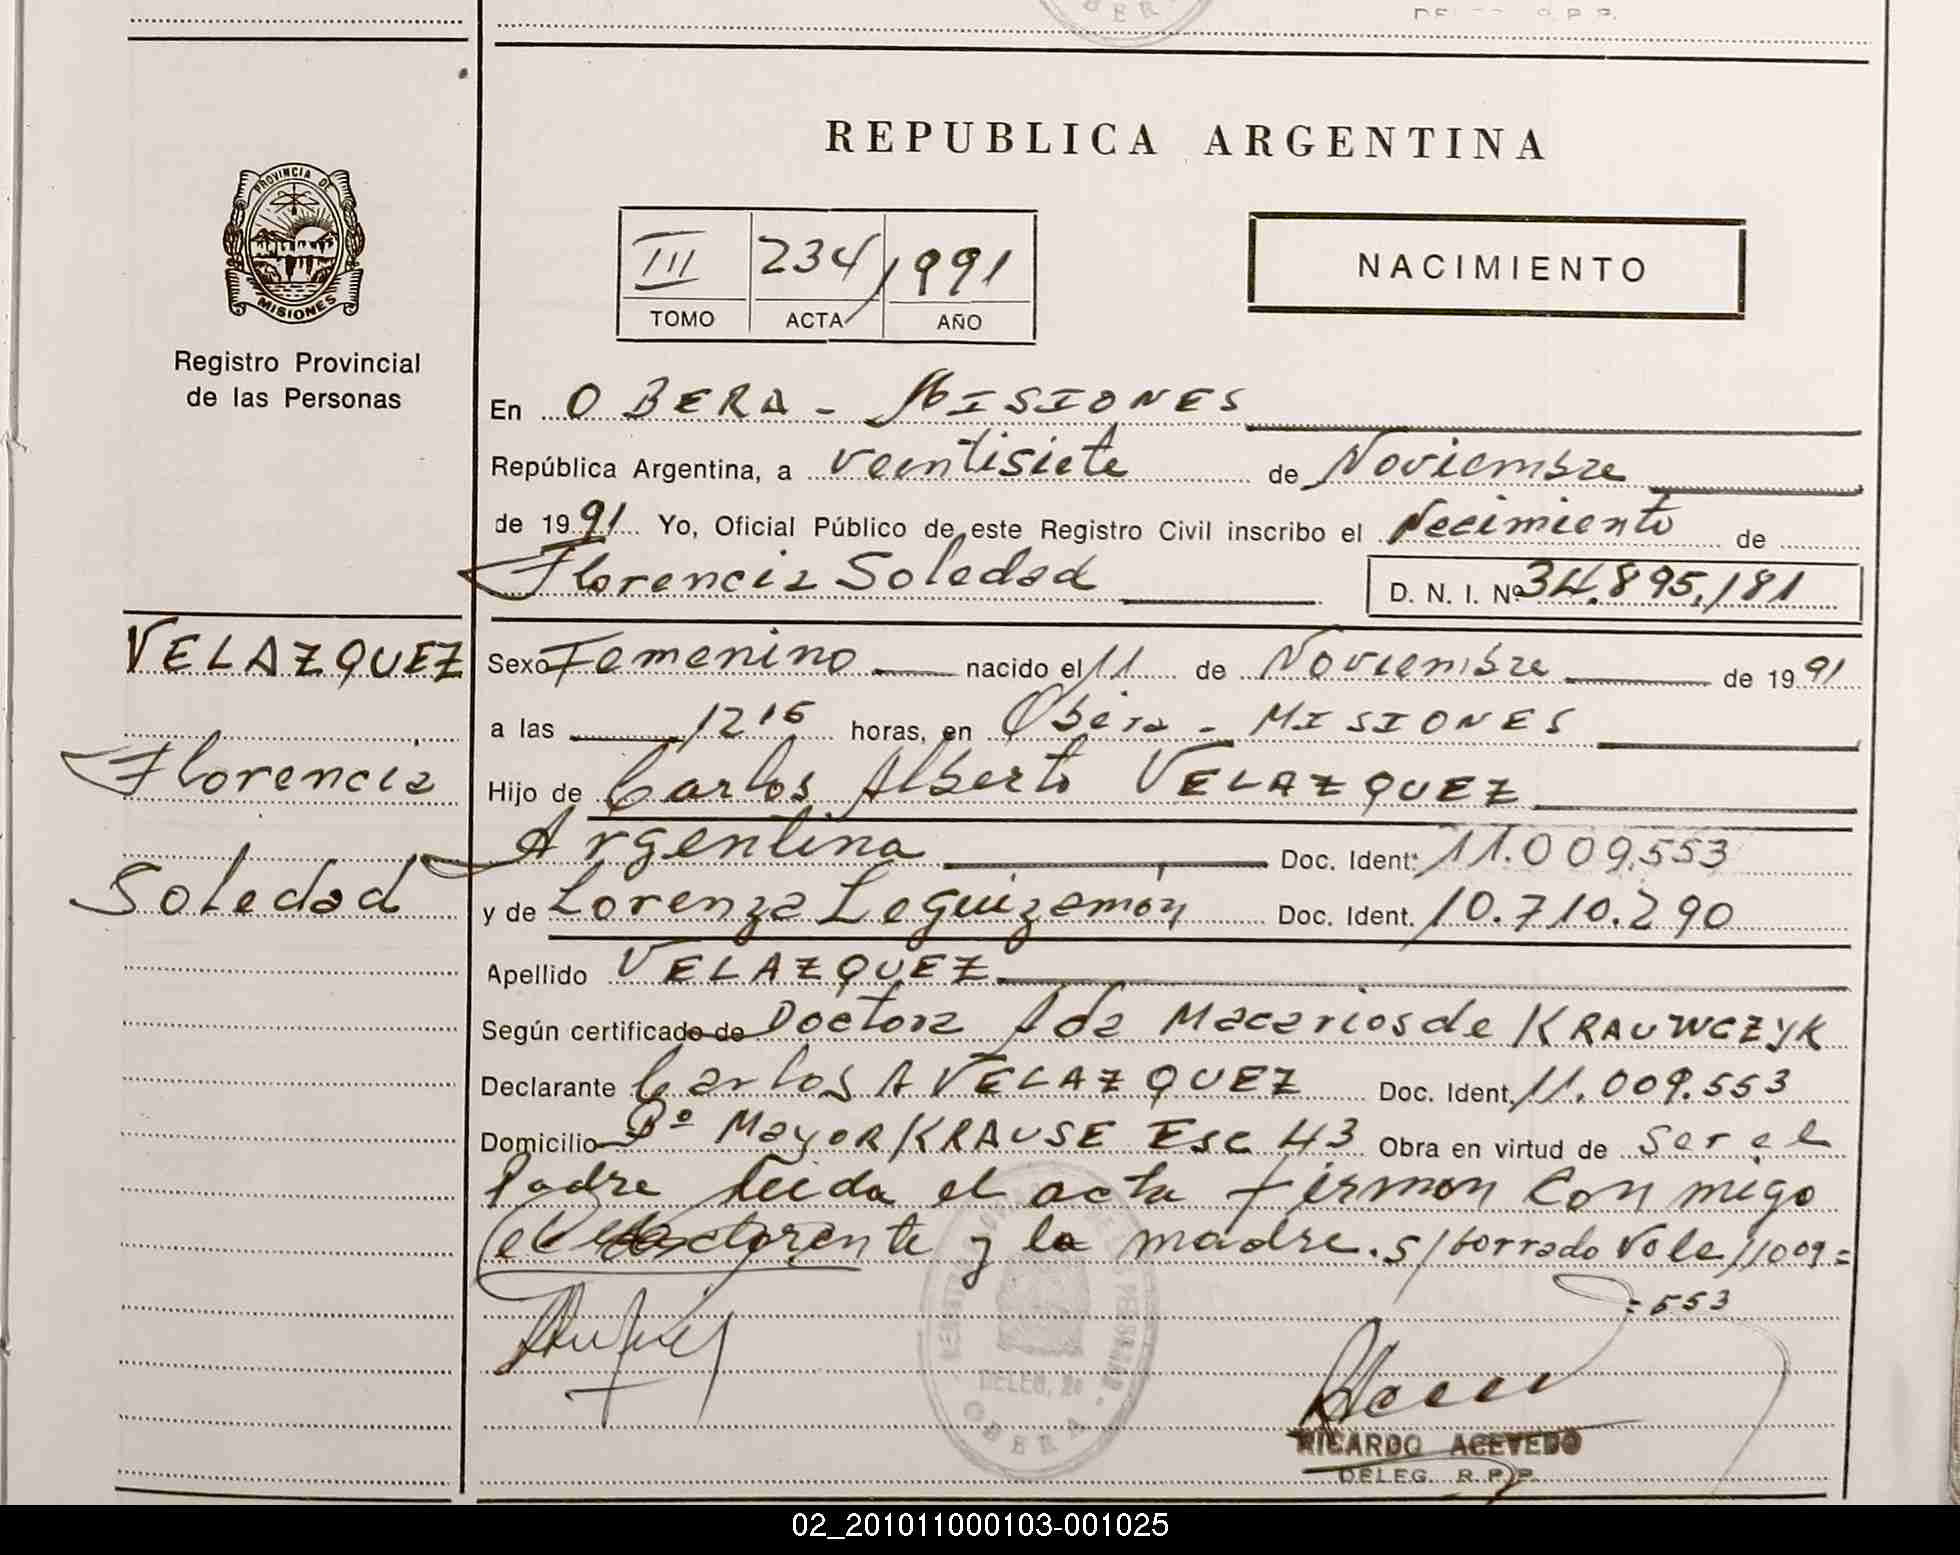 REPUBLICA ARGENTINA
PROVINCIA DE
MISIONES
Registro Provincial
de las Personas
III 234 1991
TOMO ACTA AÑO
NACIMIENTO
En OBERA - MISIONES
República Argentina, a veintisiete de Noviembre
de 1991 Yo, Oficial Público de este Registro Civil inscribo el Necimiento de
Florencia Soledad D. N. I. Nº 34.895.181
VELAZQUEZ
Florencia
Soledad
Sexo Femenino nacido el 11 de Noviembre de 1991
a las 12 15 horas, en Obera - MISIONES
Hijo de Carlos Alberto VELAZQUEZ
Argentina Doc. Ident: 11.009.553
y de Lorenza Leguizamón Doc. Ident. 10.710.290
Apellido VELAZQUEZ
Según certificado de Doctora Ada Macarios de KRAUWCZYK
Declarante Carlos A VELAZQUEZ Doc. Ident. 11.009.553
Domicilio Bº Mayor KRAUSE Esc 43 Obra en virtud de ser el
Padre leida el acta firman conmigo
el declarante y la madre. s/borrado Vale 11009=
=553
DELEG.
OBERA
RICARDO ACEVEDO
DELEG. R.P.P.
02_201011000103-001025